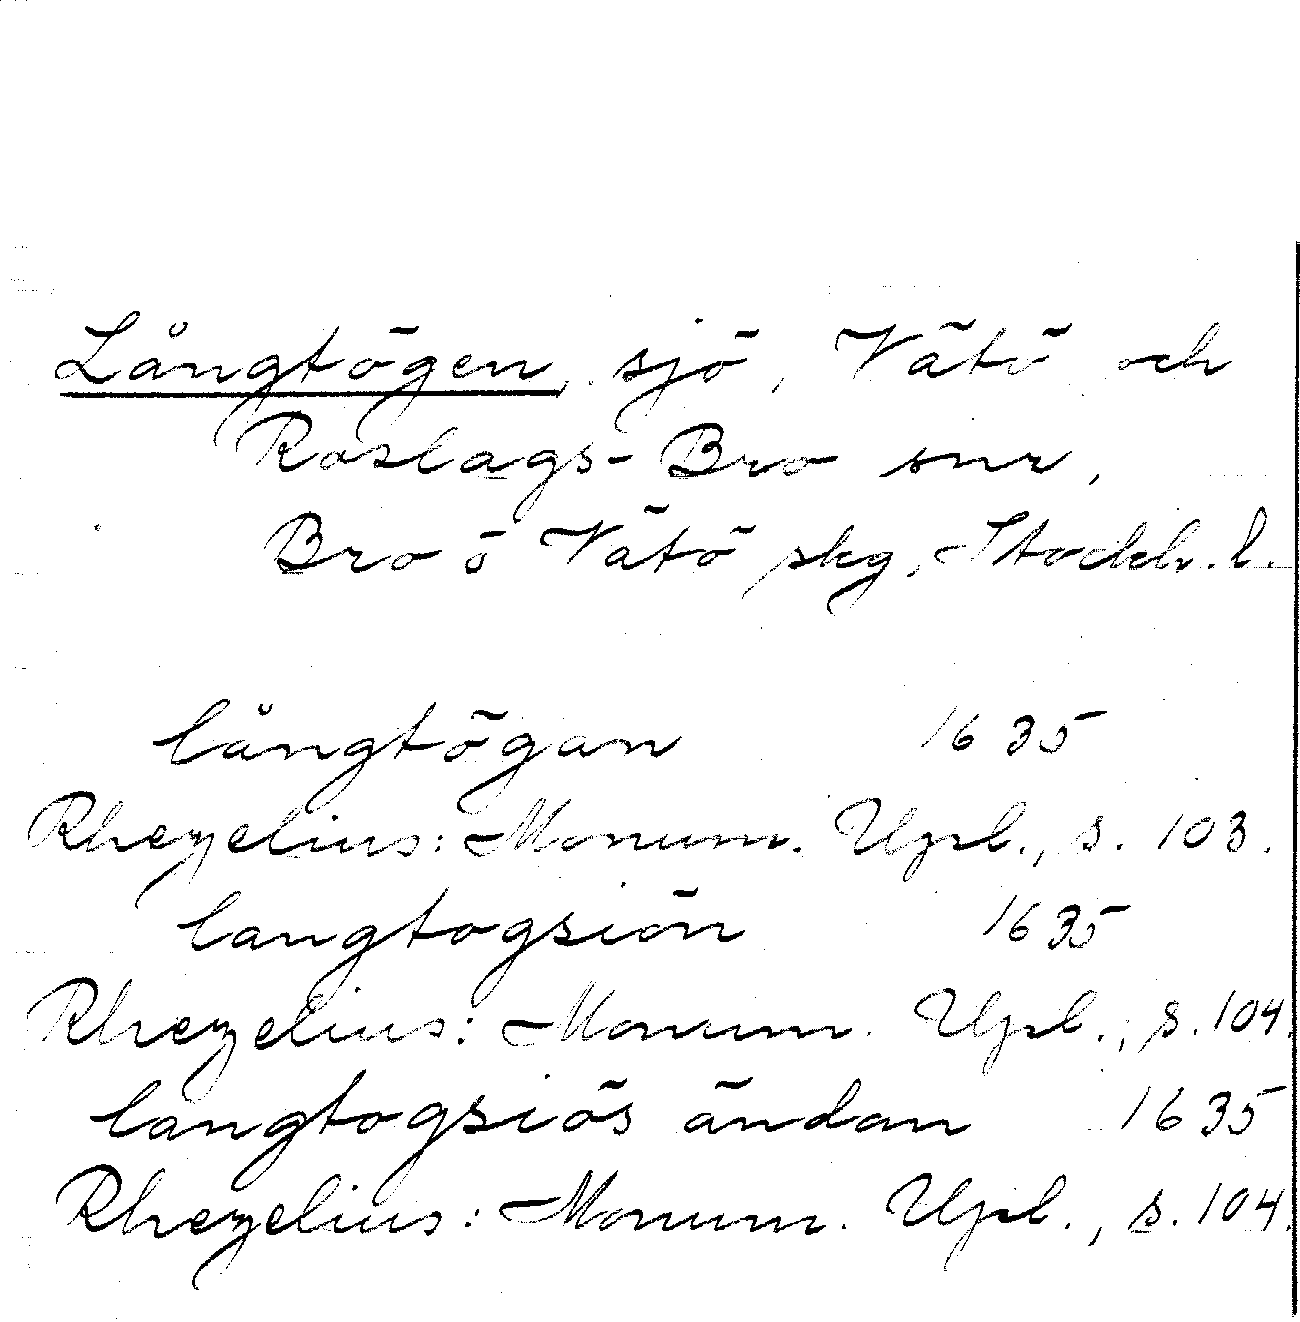 Långtögen, sjö, Vätö och
Roslags-Bro snr,
Bro o Vätö skg, Stockh. l.
långtögan 1635
Rhezelius: Monum. Upl., s. 103.
langtogsiön 1635
Rhezelius: Monum. Upl., s. 104.
langtogsiös ändan 1635
Rhezelius: Monum. Upl., s. 104.